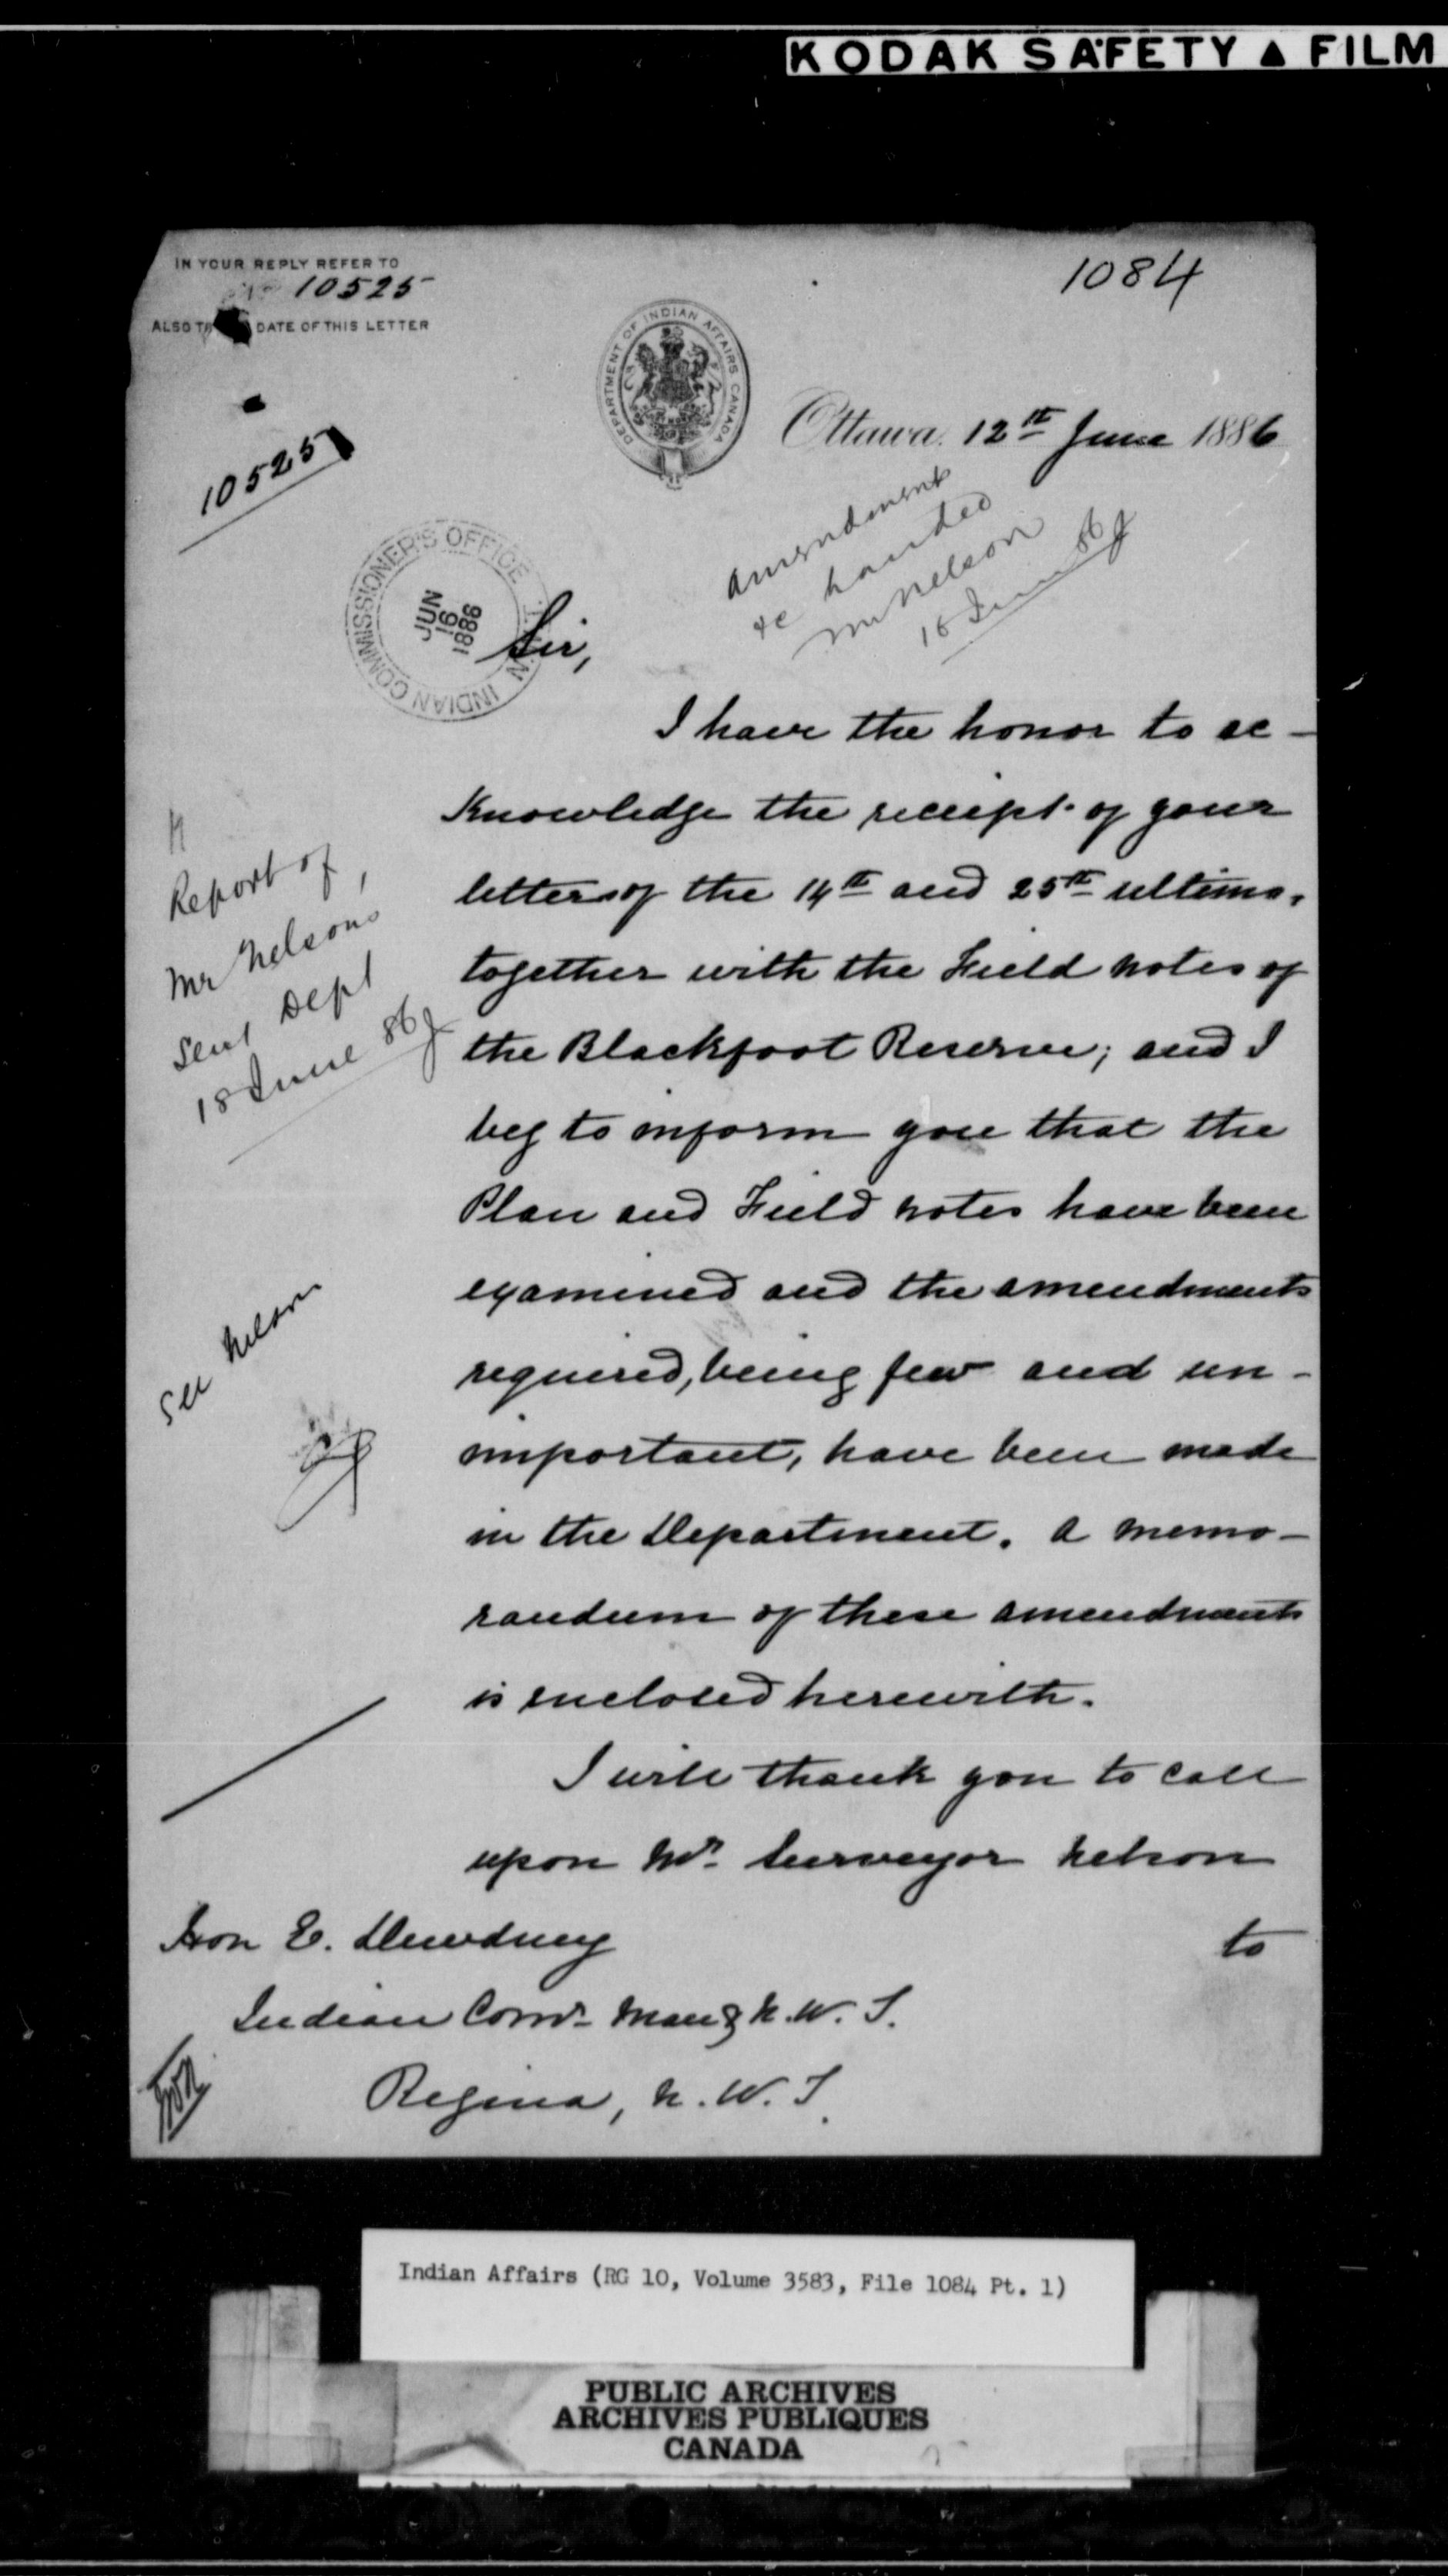 KODAK SAFETY ▲ FILM
IN YOUR REPLY REFER TO
No 10525
ALSO THE DATE OF THIS LETTER
1084
DEPARTMENT OF INDIAN AFFAIRS CANADA
Ottawa. 12th June 1886
10525
amendments
&c handed
Mr Nelson
INDIAN COMMISSIONER'S OFFICE
JUN
16
1886
Sir,
I have the honor to ac-
knowledge the receipt of your
letters of the 14th and 25th ultimo,
together with the Field notes of
the Blackfoot Reserve; and I
beg to inform you that the
Plan and Field notes have been
examined and the amendments
required, being few and un-
important, have been made
in the Department. A memo-
randum of these amendments
is enclosed herewith.
I will thank you to call
upon Mr. Surveyor Nelson
to
Report of
Mr Nelsons
sent Dept
18 June 86
See Nelson
Hon E. Dewdney
Indian Comr. Man & N. W. T.
Regina, N. W. T.
Indian Affairs (RG 10, Volume 3583, File 1084 Pt. 1)
PUBLIC ARCHIVES
ARCHIVES PUBLIQUES
CANADA